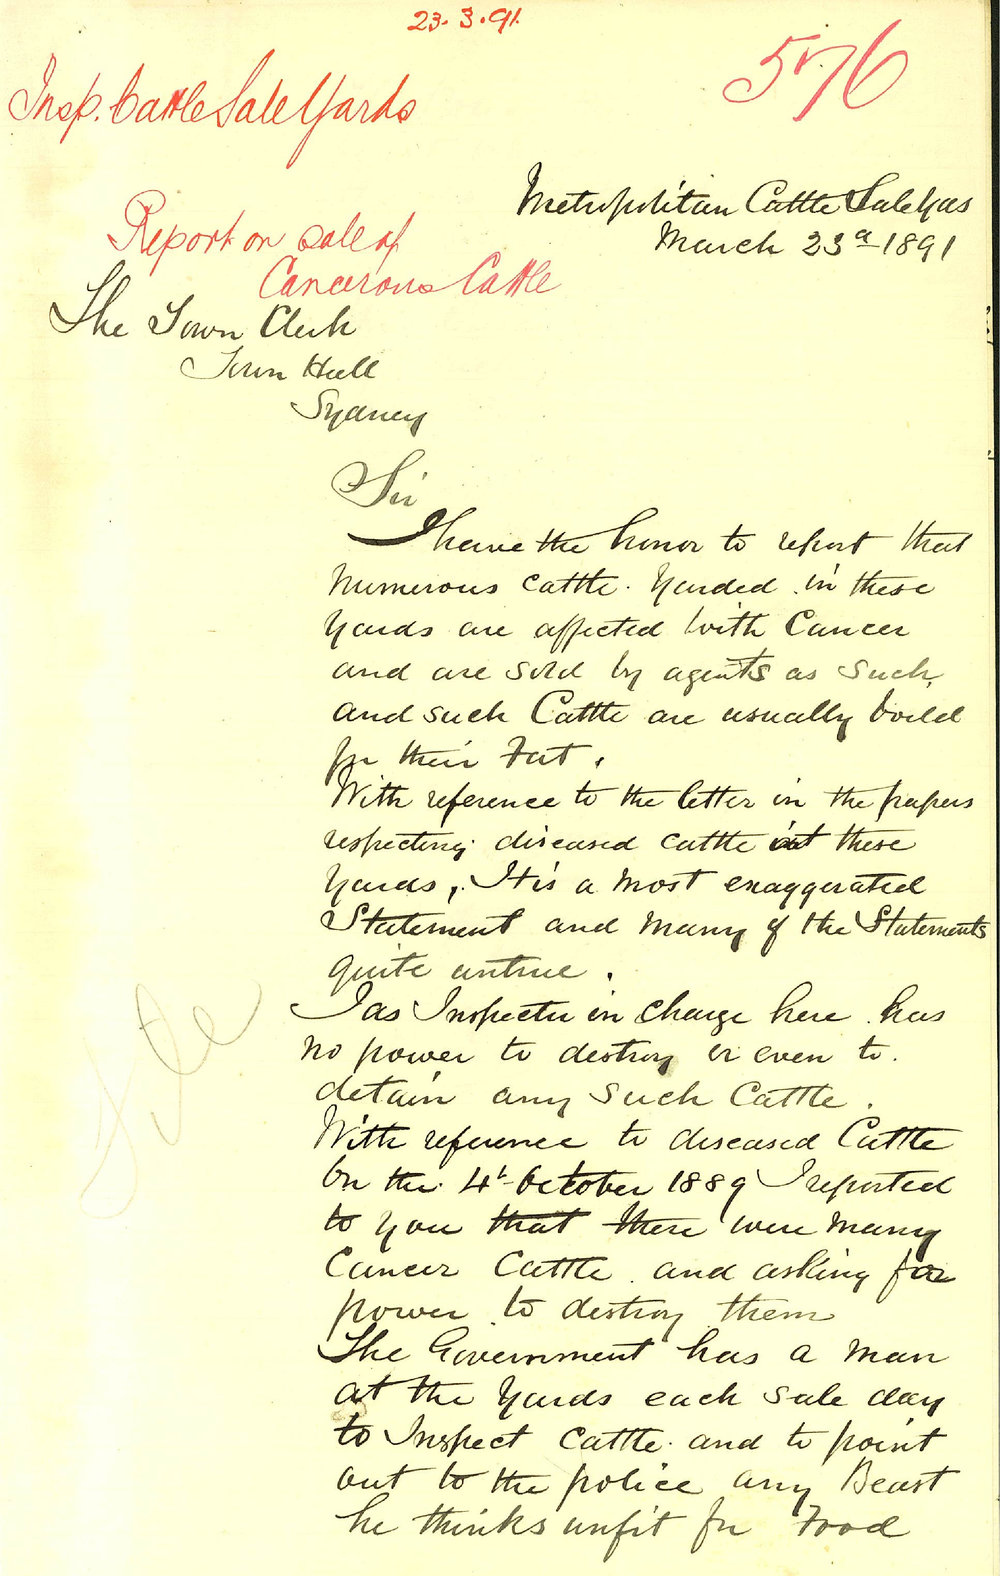 23.3.91.
576
Insp. Cattle Sale Yards
Metropolitan Cattle Sale Yds
March 23d 1891
Report on sale of
Cancerous Cattle
The Town Clerk
Town Hall
Sydney
Sir
I have the honor to report that
numerous cattle yarded in these
yards are affected with Cancer
and are sold by agents as such,
and such Cattle are usually boild
for their Fat.
With reference to the letter in the papers
respecting diseased cattle at these
yards, It is a most exaggerated
Statement and many of the Statements
quite untrue.
I as Inspector in charge here has
no power to destroy or even to
detain any such Cattle.
With reference to diseased Cattle
On the 4th October 1889 I reported
to you that there were many
Cancer Cattle and asking for
power to destroy them
The Government has a man
at the yards each sale day
to Inspect Cattle and to point
out to the police any Beast
he thinks unfit for Food